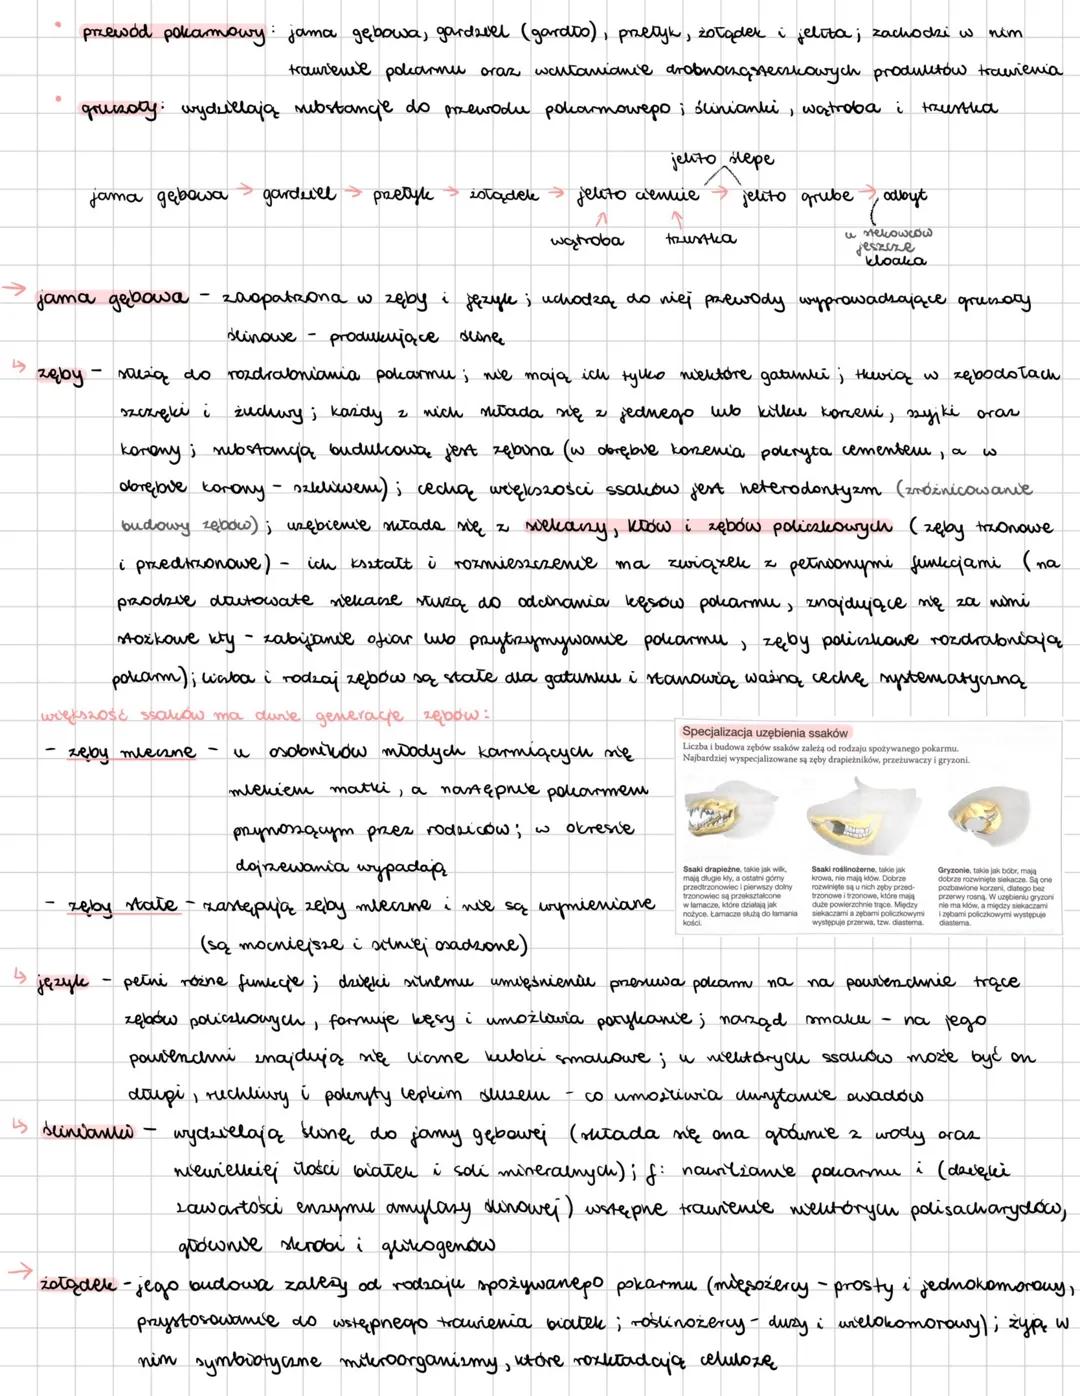 • przewód pokarmowy: jama gębowa, gardziel (gardło), przełyk, żołądek i jelita; zachodzi w nim
trawienie pokarmu oraz wchłanianie drobnocząsteczkowych produktów trawienia
• gruczoły: wydzielają substancje do przewodu pokarmowego; ślinianki, wątroba i trzustka
jelito ślepe
jama gębowa → gardziel → przełyk → żołądek → jelito cienkie → jelito grube → odbyt
wątroba trzustka
u stekowców
jeszcze
kloaka
→ jama gębowa - zaopatrzona w zęby i język; uchodzą do niej przewody wyprowadzające gruczoły
ślinowe - produkujące ślinę
↳ zęby - służą do rozdrabniania pokarmu; nie mają ich tylko niektóre gatunki; tkwią w zębodołach
szczęki i żuchwy; każdy z nich składa się z jednego lub kilku korzeni, szyjki oraz
korony; substancją budulcową jest zębina (w obrębie korzenia pokryta cementem, a w
obrębie korony - szkliwem); cechą większości ssaków jest heterodontyzm (zróżnicowanie
budowy zębów); uzębienie składa się z siekaczy, kłów i zębów policzkowych (zęby trzonowe
i przedtrzonowe) - ich kształt i rozmieszczenie ma związek z pełnionymi funkcjami (na
przodzie dłutowate siekacze służą do odcinania kęsów pokarmu, znajdujące się za nimi
stożkowe kły - zabijanie ofiar lub przytrzymywanie pokarmu, zęby policzkowe rozdrabniają
pokarm); liczba i rodzaj zębów są stałe dla gatunku i stanowią ważną cechę systematyczną
większość ssaków ma dwie generacje zębów:
- zęby mleczne - u osobników młodych karmiących się
mlekiem matki, a następnie pokarmem
przynoszącym przez rodziców; w okresie
dojrzewania wypadają
- zęby stałe - zastępują zęby mleczne i nie są wymieniane
(są mocniejsze i silniej osadzone)
Specjalizacja uzębienia ssaków
Liczba i budowa zębów ssaków zależą od rodzaju spożywanego pokarmu.
Najbardziej wyspecjalizowane są zęby drapieżników, przeżuwaczy i gryzoni.
Ssaki drapieżne, takie jak wilk,
mają długie kły, a ostatni górny
przedtrzonowiec i pierwszy dolny
trzonowiec są przekształcone
w łamacze, które działają jak
nożyce. Łamacze służą do łamania
kości.
Ssaki roślinożerne, takie jak
krowa, nie mają kłów. Dobrze
rozwinięte są u nich zęby przed-
trzonowe i trzonowe, które mają
duże powierzchnie trące. Między
siekaczami a zębami policzkowymi
występuje przerwa, tzw. diastema.
Gryzonie, takie jak bóbr, mają
dobrze rozwinięte siekacze. Są one
pozbawione korzeni, dlatego bez
przerwy rosną. W uzębieniu gryzoni
nie ma kłów, a między siekaczami
i zębami policzkowymi występuje
diastema.
↳ język - pełni różne funkcje; dzięki silnemu umięśnieniu przesuwa pokarm na na powierzchnie trące
zębów policzkowych, formuje kęsy i umożliwia połykanie; narząd smaku - na jego
powierzchni znajdują się liczne kubki smakowe; u niektórych ssaków może być on
długi, ruchliwy i pokryty lepkim śluzem - co umożliwia chwytanie owadów
↳ ślinianki - wydzielają ślinę do jamy gębowej (składa się ona głównie z wody oraz
niewielkiej ilości białek i soli mineralnych); f: nawilżanie pokarmu i (dzięki
zawartości enzymu amylazy ślinowej) wstępne trawienie niektórych polisacharydów,
głównie skrobi i glikogenów
→ żołądek - jego budowa zależy od rodzaju spożywanego pokarmu (mięsożercy - prosty i jednokomorowy,
przystosowanie do wstępnego trawienia białek; roślinożercy - duży i wielokomorowy); żyją w
nim symbiotyczne mikroorganizmy, które rozkładają celulozę